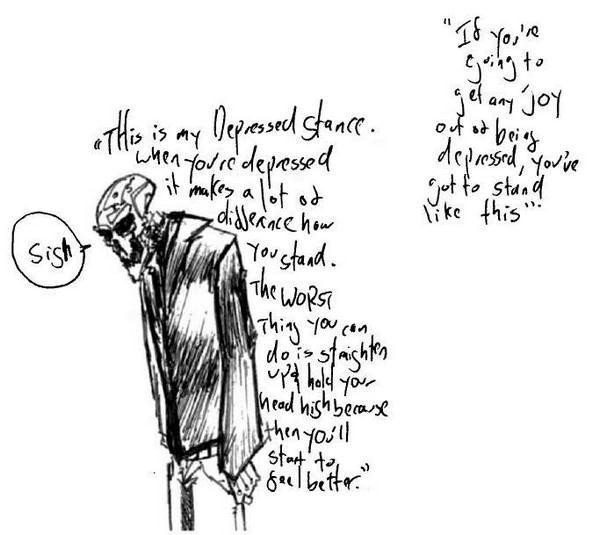 "This is my Depressed stance.
when you're depressed
it makes a lot of
differnce how
you stand.
The WORST
Thing you can
do is straighten
up & hold your
head high because
then you'll
start to
feel better."
Sigh
"If you're
going to
get any joy
out of being
depressed, you've
got to stand
like this"